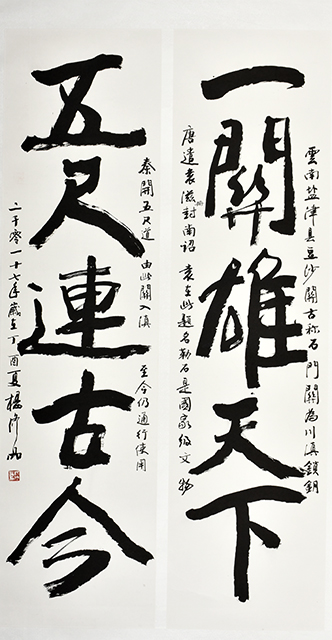 雲南盐津县豆沙關古称石門關為川滇鎖鈅
一關雄天下
唐遣袁滋封南詔 袁在此题名勒石是國家级文物
秦開五尺道 由此關入滇 至今仍通行使用
五尺連古今
二千零一十七年歲在丁酉夏楊